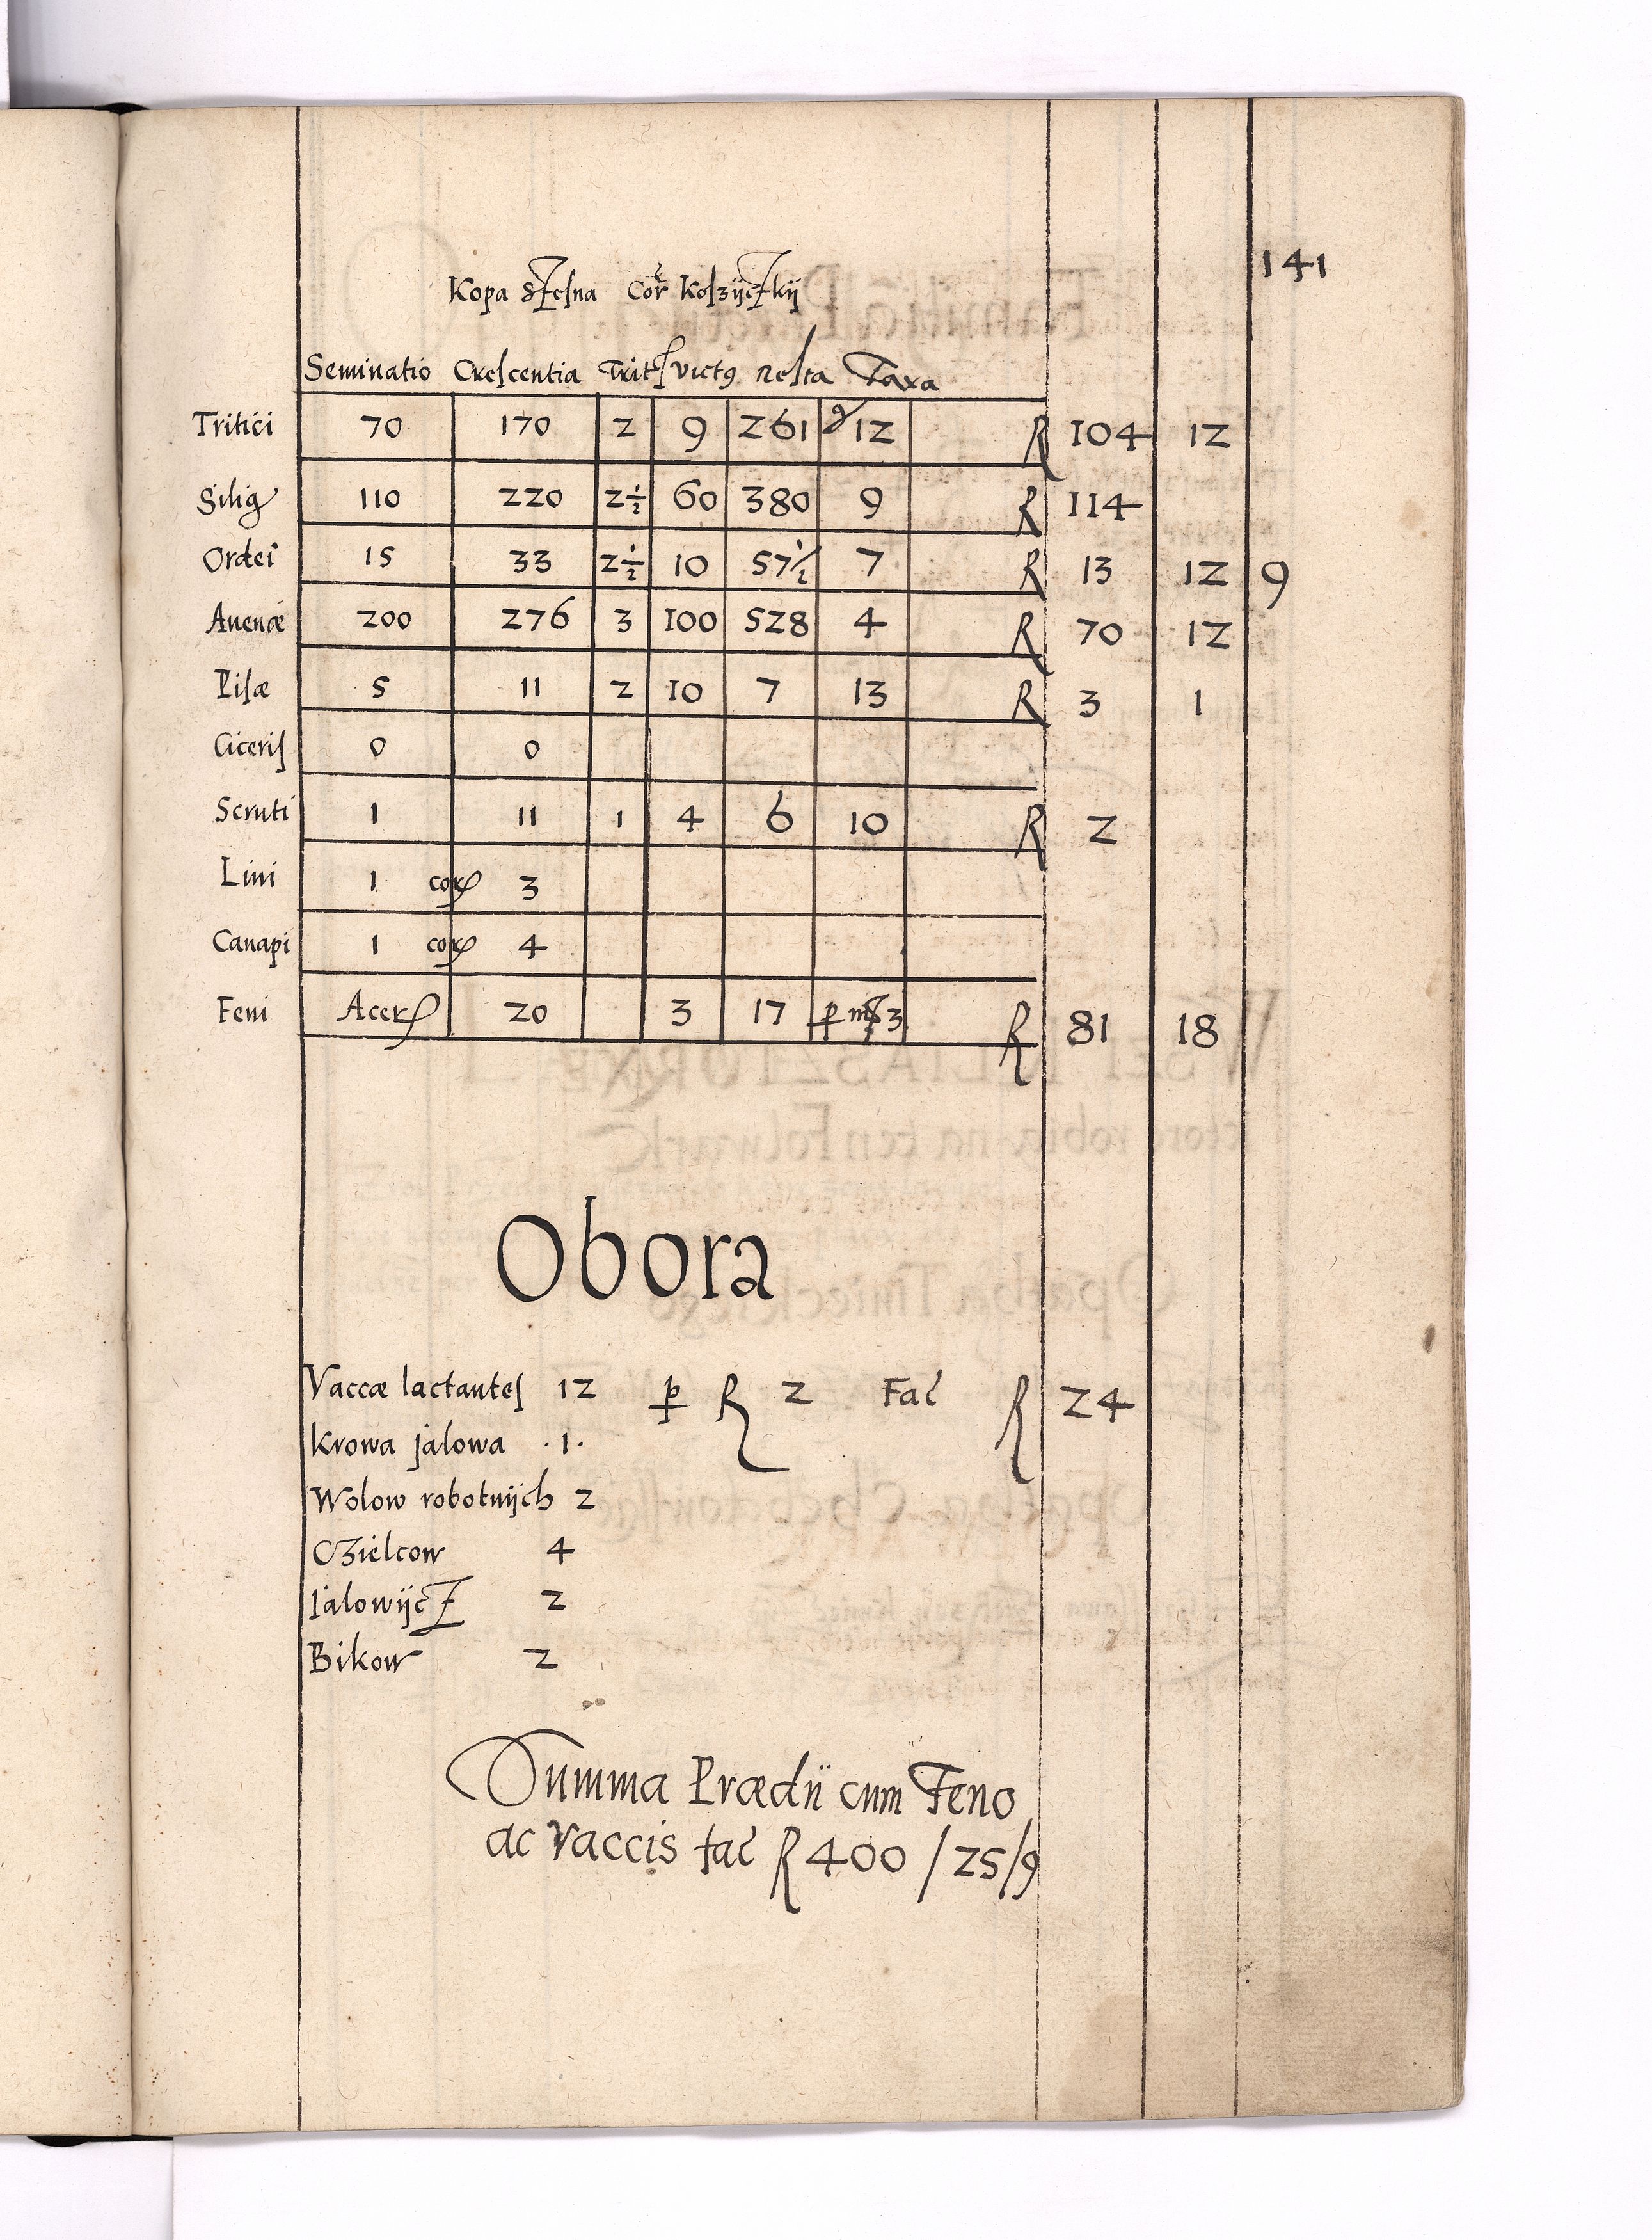 141
Kopa Cor̃
Seminatio Crescentia Trit victꝰ Resta Taxa
Tritici 70 170 2 9 261 12 R 104 12
Silig 110 220 2½ 60 380 9 R 114
Ordei 15 33 2½ 10 57½ 7 R 13 12 9
Auenæ 200 276 3 100 528 4 R 70 12
Pisæ 5 11 2 10 7 13 R 3 1
Ciceris 0 0
Scruti 1 11 1 4 6 10 R 2
Lini 1 cor 3
Canapi 1 cor 4
Feni Acer 20 3 17 ꝑ 3 R 81 18
Obora
Vaccæ lactantes 12 ꝑ R 2 Fac̃ R 24
Krowa jalowa .1.
Wolow robotnÿch 2
Czielcow 4
Ialowÿcz 2
Bikow 2
Summa Prædii cum Feno
ac vaccis fac̃ R 400 / 25 / 9